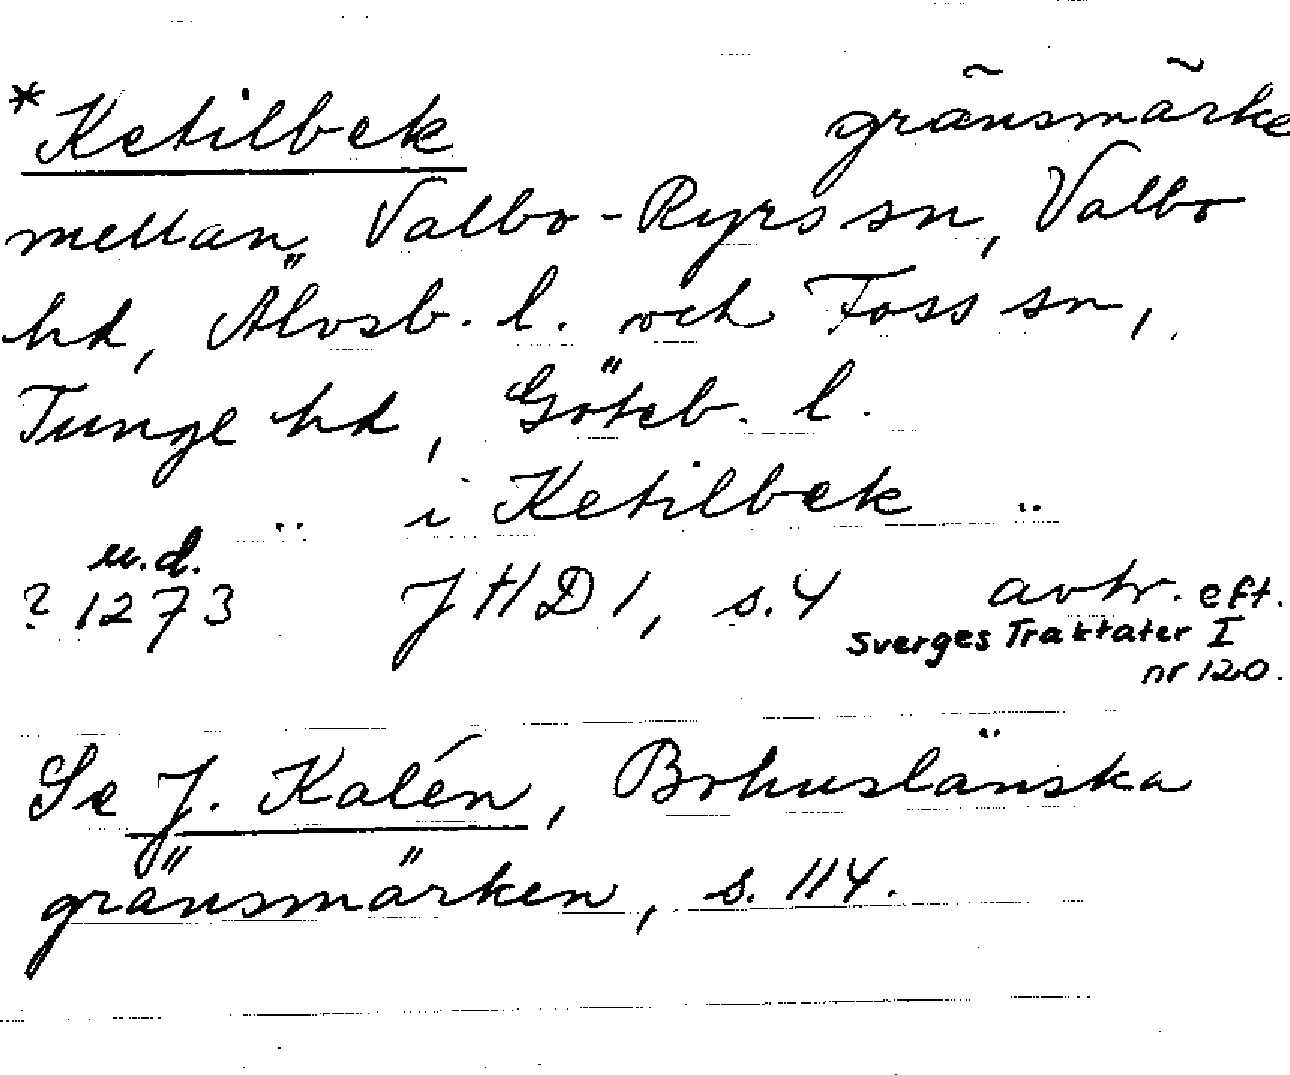 *Ketilbek gränsmärke
mellan Valbo-Ryrs sn, Valbo
hd, Älvsb. l. och Foss sn,
Tunge hd, Göteb. l.
.. i Ketilbek ..
u.d.
? 1273 JHD 1, s.4 avtr. eft.
Sverges Traktater I
nr 120.
Se J. Kalén, Bohuslänska
gränsmärken, s. 114.